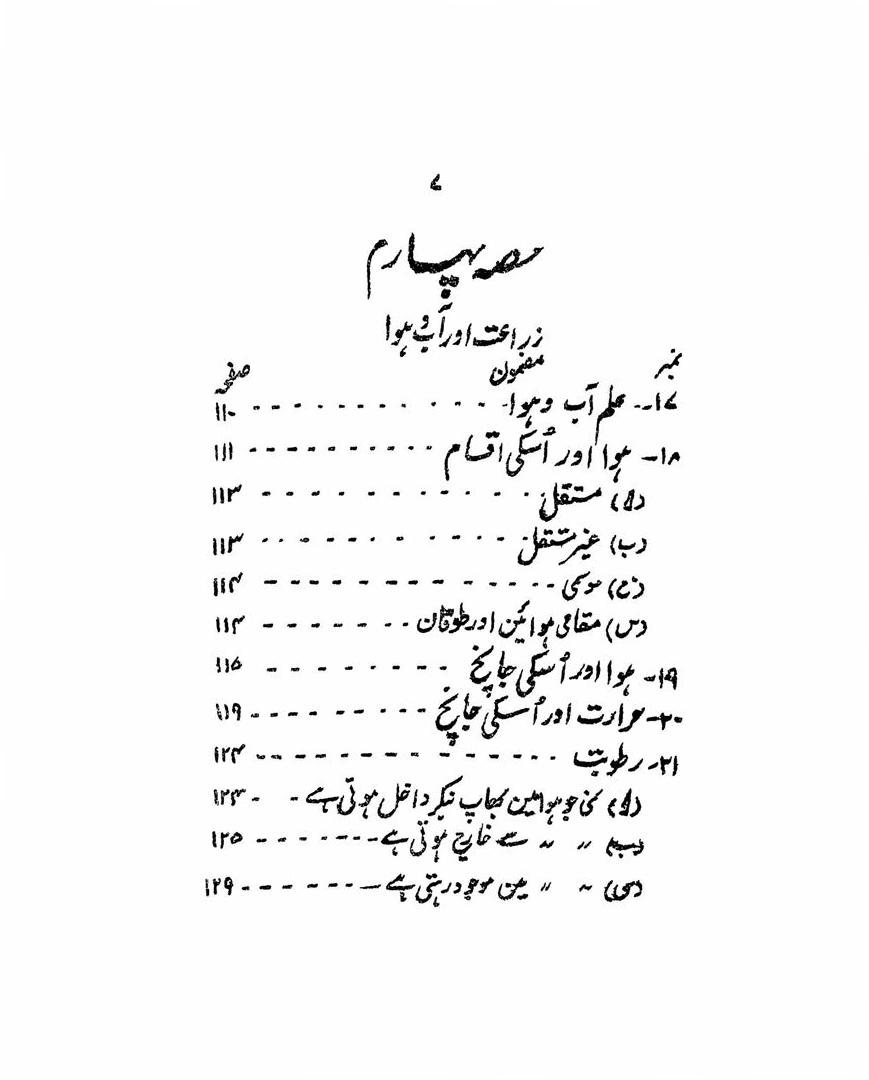 ۷
حصہ چہارم
زراعت اور آب و ہوا
نمبر مضمون صفحہ
۱۷- علم آب و ہوا - - - - - - - - - - - - ۱۱۰
۱۸- ہوا اور اُسکی اقسام - - - - - - - - - - ۱۱۱
(ا) مستقل - - - - - - - - - - - - ۱۱۳
(ب) غیر مستقل - - - - - - - - - - - ۱۱۳
(ج) موسمی - - - - - - - - - - - - ۱۱۴
(س) مقامی ہوائین اور طوفان - - - - - - - - ۱۱۴
۱۹- ہوا اور اُسکی جانچ - - - - - - - - ۱۱۵
۲۰- حرارت اور اُسکی جانچ - - - - - - - - ۱۱۹
۲۱- رطوبت - - - - - - - - - - - - ۱۲۴
(ا) نمی جو ہوا مین بھاپ بنکر داخل ہوتی ہے - - ۱۲۴
(ب) 〃 〃 سے خارج ہوتی ہے - - - - - - - - ۱۲۵
(س) 〃 〃 مین موجود رہتی ہے - - - - - - - ۱۲۹